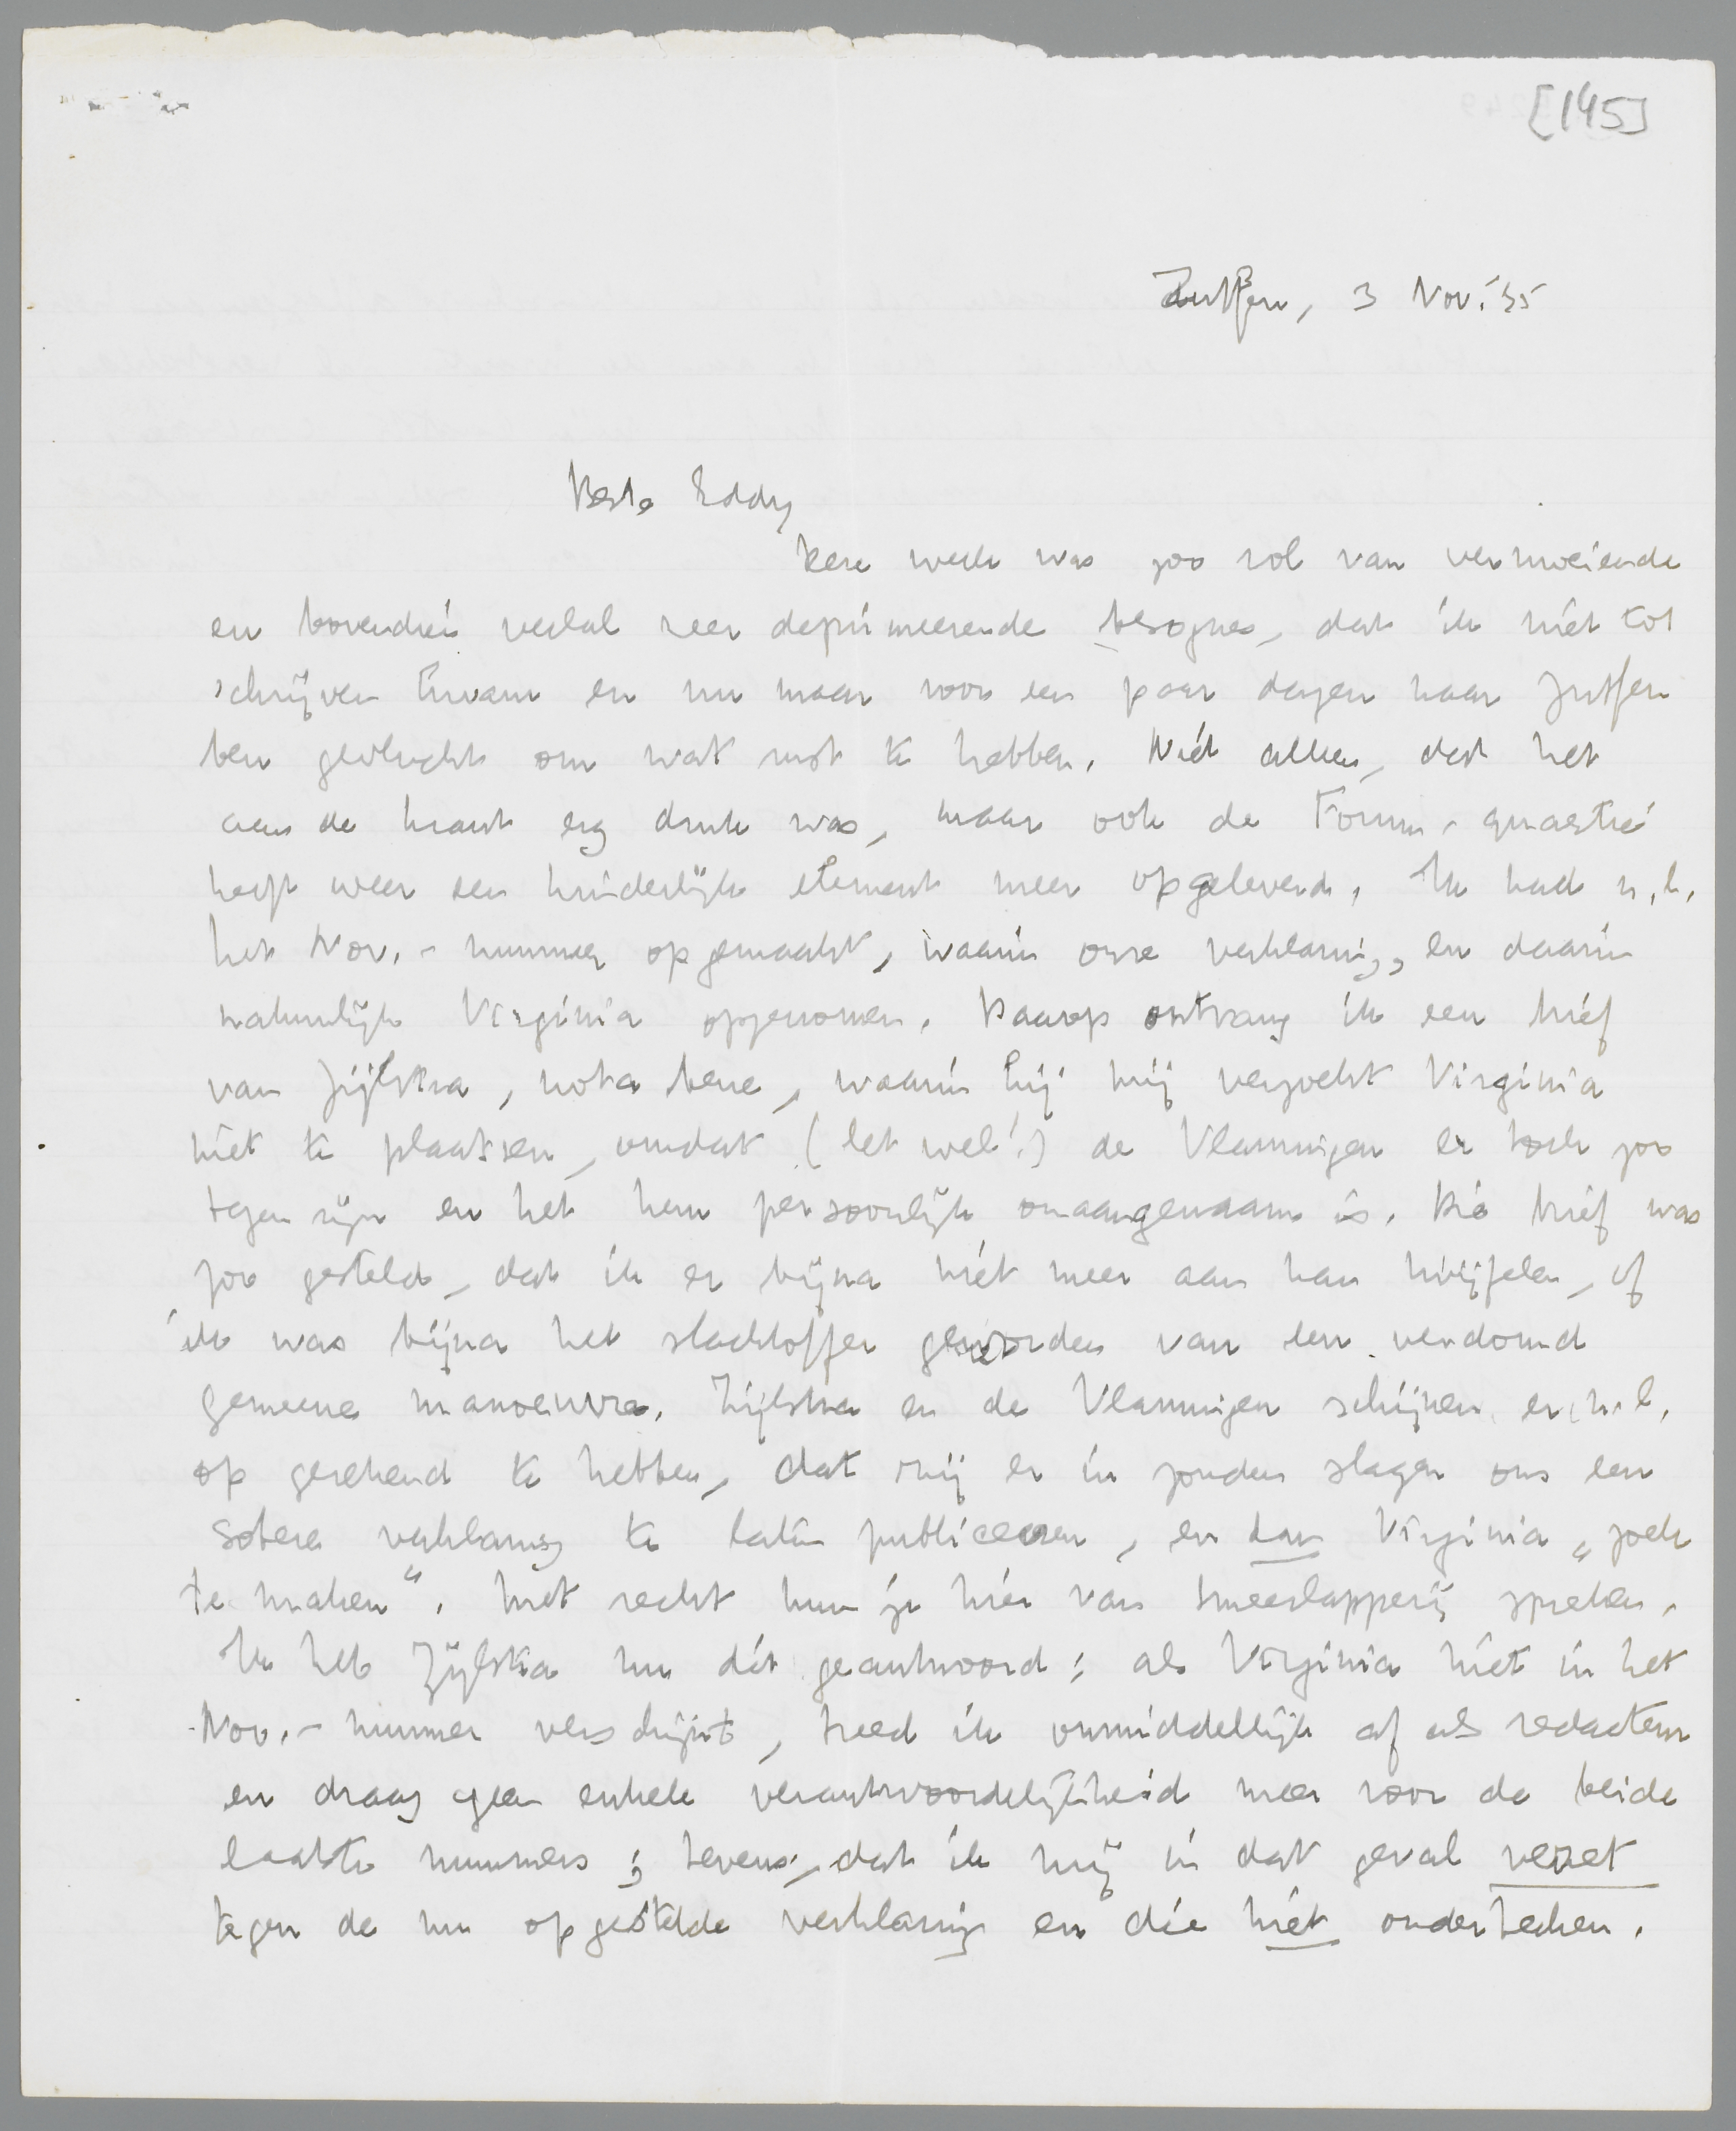 [145]
Zutfen, 3 Nov. '35
Beste Eddy
Deze week was zoo vol van vermoeiende
en bovendien veelal zeer deprimeerende besognes, dat ik niet tot
schrijven kwam en nu maar voor een paar dagen naar Zutfen
ben gevlucht om wat rust te hebben. Niet alleen, dat het
aan de krant erg druk was, maar ook de Forum-quaestie
heeft weer een hinderlijk element meer opgeleverd. Ik had n.l.
het Nov.-nummer opgemaakt, waarin onze verklaring, en daarin
natuurlijk Virginia opgenomen. Daarop ontvang ik een brief
van Zijlstra, nota bene, waarin hij mij verzoekt Virginia
niet te plaatsen, omdat (let wel!) de Vlamingen er toch zoo
tegen zijn en het hem persoonlijk onaangenaam is. Die brief was
zoo gesteld, dat ik er bijna niet meer aan kan twijfelen, of
ik was bijna het slachtoffer geworden van een verdomd
gemeene manoeuvre. Zijlstra en de Vlamingen schijnen er n.l.
op gerekend te hebben, dat zij er in zouden slagen ons een
sobere verklaring te laten publiceeren, en dan Virginia „zoek
te maken". Met recht kun je hier van smeerlapperij spreken.
Ik heb Zijlstra nu dit geantwoord: als Virginia niet in het
Nov.-nummer verschijnt, treed ik onmiddellijk af als redacteur
en draag geen enkele verantwoordelijkheid meer voor de beide
laatste nummers; tevens, dat ik mij in dat geval verzet
tegen de nu opgestelde verklaring en die niet onderteeken.